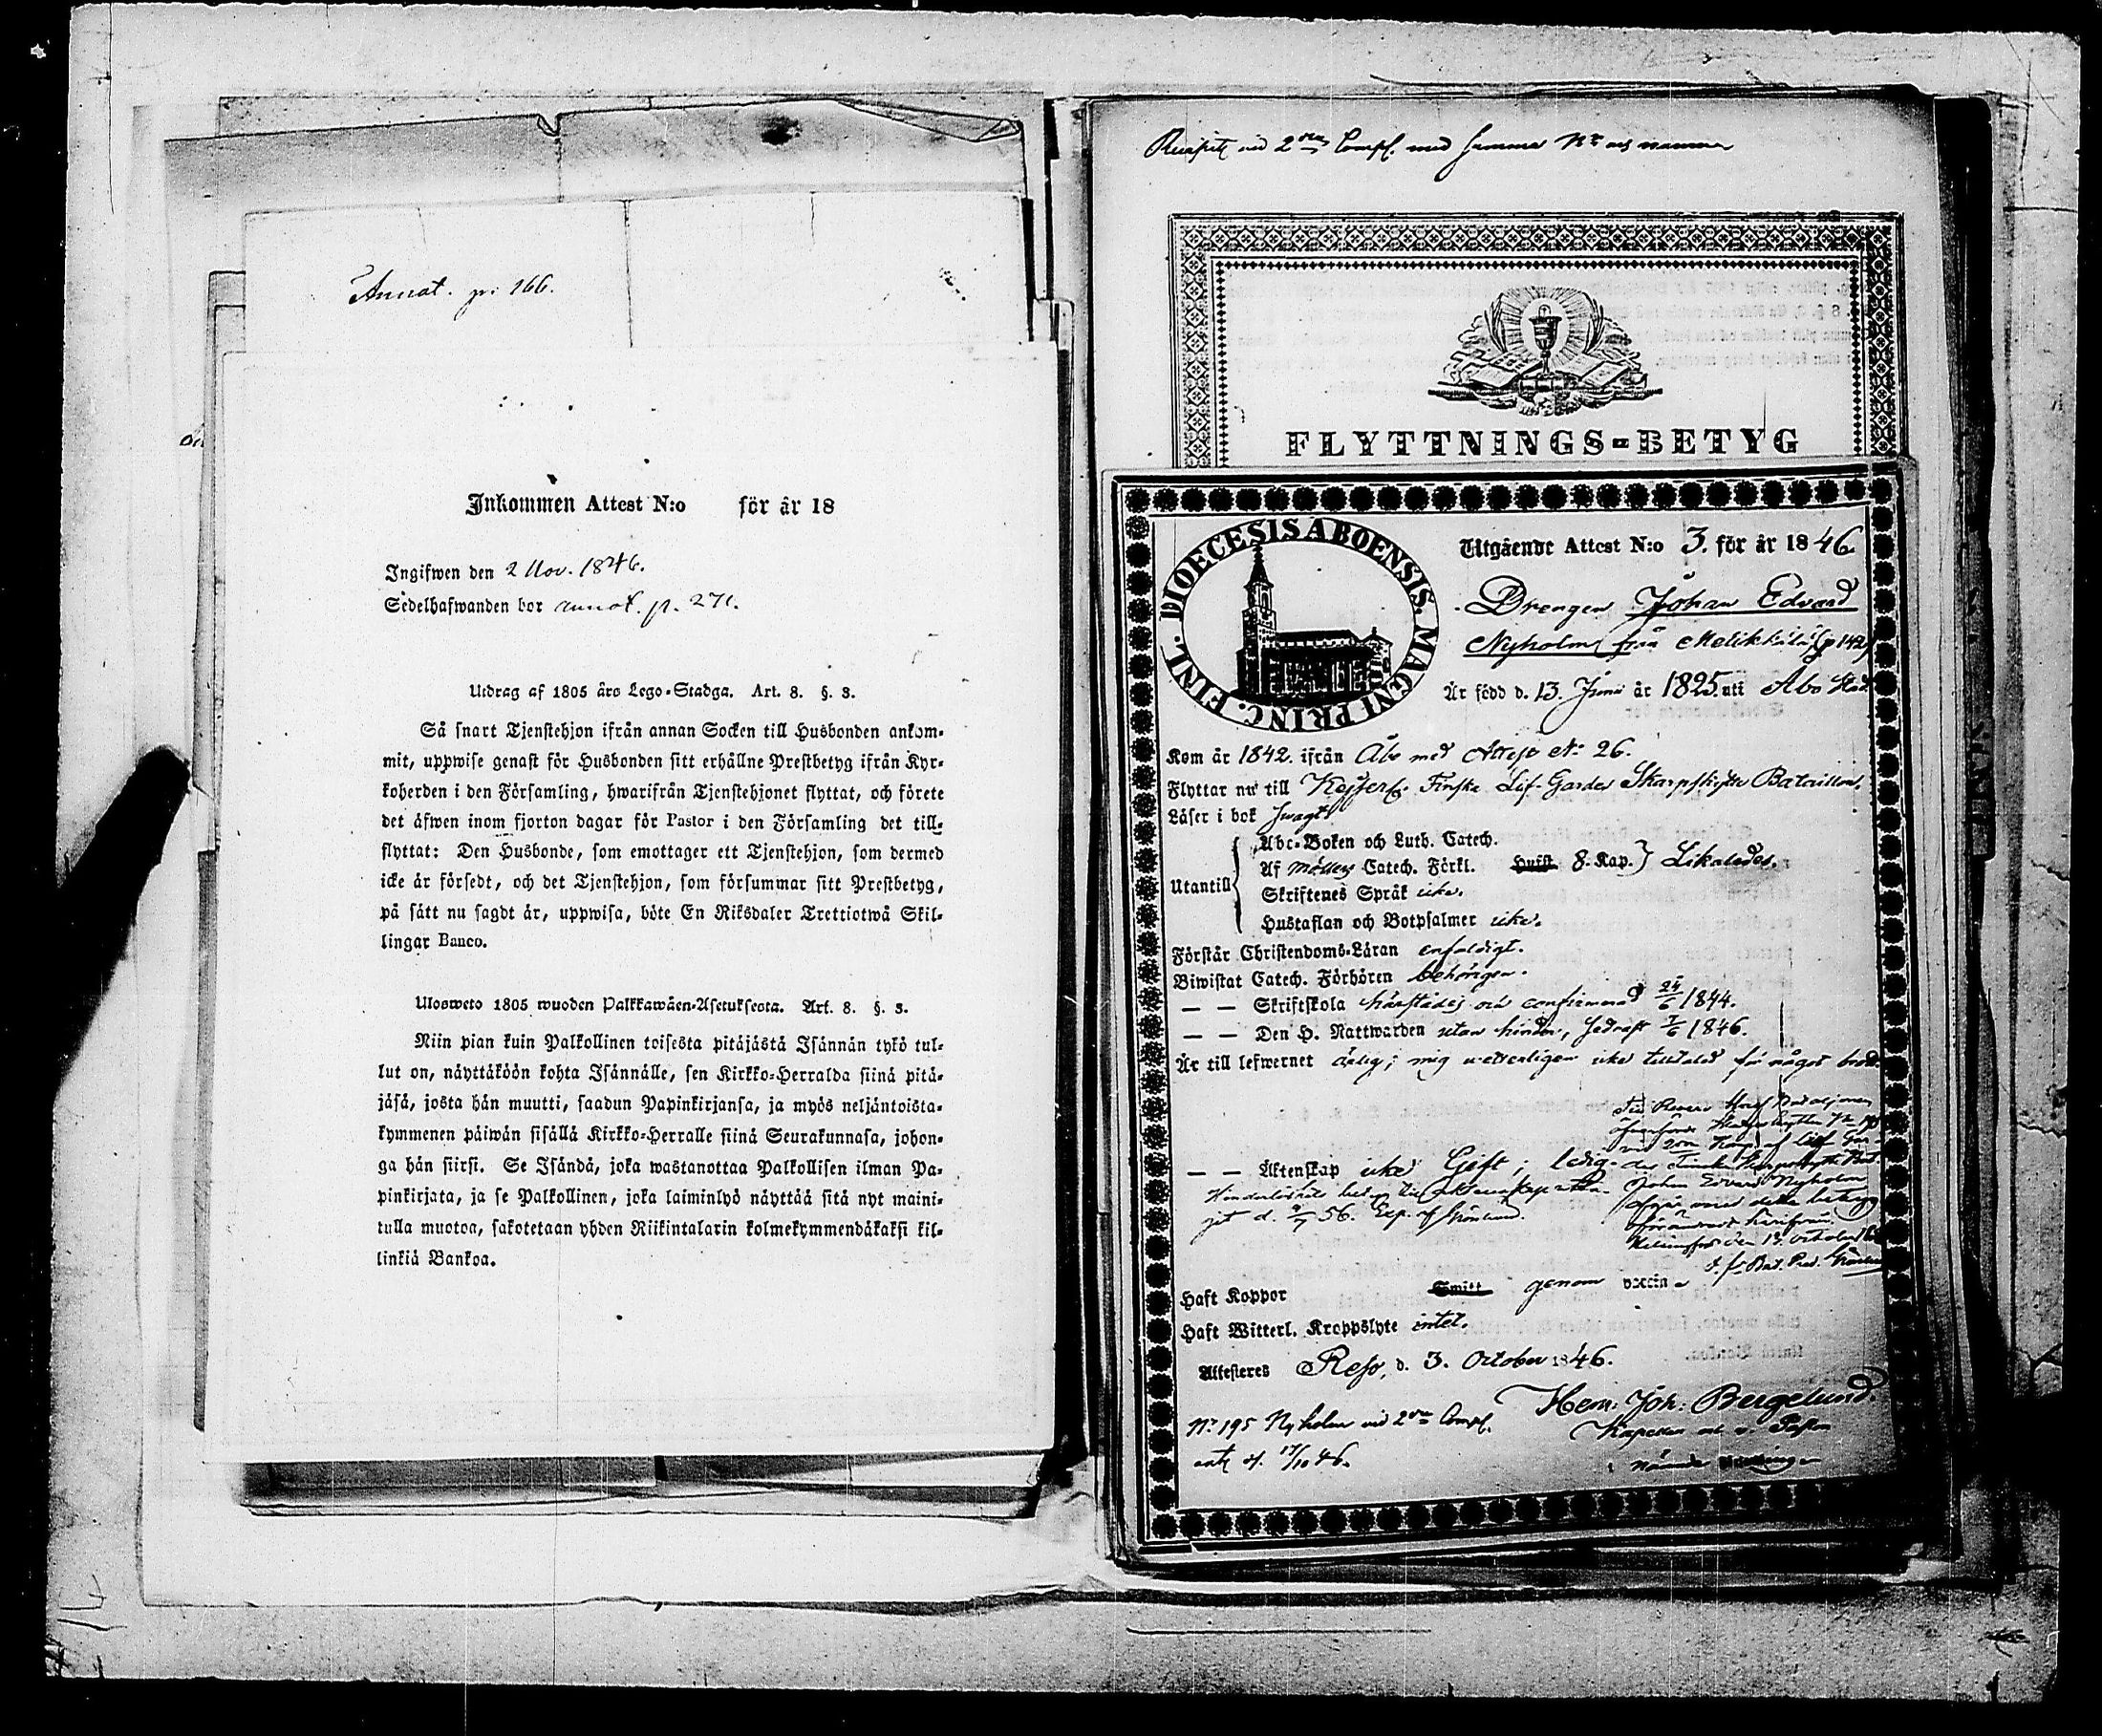 Annot. p: 166.
Inkommen Attest N:o för år 18
Ingifwen den 2 Nov. 1846.
Sedelhafwanden bor annot. p. 271.
Utdrag af 1805 års Lego-Stadga. Art. 8. §. 3.
Så snart Tjenstehjon ifrån annan Socken till Husbonden ankom-
mit, uppwise genast för Husbonden sitt erhållne Prestbetyg ifrån Kyr-
koherden i den Församling, hwarifrån Tjenstehjonet flyttat, och förete
det äfwen inom fjorton dagar för Pastor i den Församling det till-
flyttat: Den Husbonde, som emottager ett Tjenstehjon, som dermed
icke är försedt, och det Tjenstehjon, som försummar sitt Prestbetyg,
på sätt nu sagdt är, uppwisa, böte En Riksdaler Trettiotwå Skil-
lingar Banco.
Ulosweto 1805 wuoden Palkkawäen-Asetuksesta. Art. 8. §. 3.
Niin pian kuin Palkollinen toisesta pitäjästä Isännän tykö tul-
lut on, näyttäköön kohta Isännälle, sen Kirkko-Herralda siinä pitä-
jäsä, josta hän muutti, saadun Papinkirjansa, ja myös neljäntoista-
kymmenen päiwän sisällä Kirkko-Herralle siinä Seurakunnasa, johon-
ga hän siirsi. Se Isändä, joka wastanottaa Palkollisen ilman Pa-
pinkirjata, ja se Palkollinen, joka laiminlyö näyttää sitä nyt maini-
tulla muotoa, sakotetaan yhden Riikintalarin kolmekymmendäkaksi kil-
linkiä Bankoa.
vid 2dra Comp. med samma Nr och namn
FLYTTNINGS-BETYG
DIOECESIS ABOENSIS. MAGNI PRINC. FINL.
Utgående Attest N:o 3. för år 1846.
Drengen Johan Edvard
Nyholm från Melikkälä (p 142)
Är född d. 13. Junii år 1825. uti Åbo stad.
Kom år 1842. ifrån Åbo med Attest No 26.
Flyttar nu till Kejserl. Finska Lif-Gardes Skarpskytte Bataillon.
Läser i bok svagt
Utantill
Abc-Boken och Luth. Catech.
Af Möllers Catech. Förkl. Hufst. 8. Kap. } Likaledes.
Skriftenes Språk icke.
Hustaflan och Botpsalmer icke.
Förstår Christendoms-Läran enfaldigt.
Biwistat Catech. Förhören behörigen.
— — Skriftskola härstädes och confirmerad 24/6 1844.
— — Den H. Nattwarden utan hinder, sednast 7/6 1846.
Är till lefwernet ärlig; mig wetterligen icke tilltalad för något brott.
— — Äktenskap icke Gift; ledig.
Johan Edvard Nyholm
Haft Koppor Smitt genom vaccin
Haft Witterl. Kroppslyte intet.
Attesteres Reso, d. 3. October 1846.
Hem: Joh: Bergelund.
No 195 Nyholm vid 2dra Comp.
ant. d. 17/10 46.